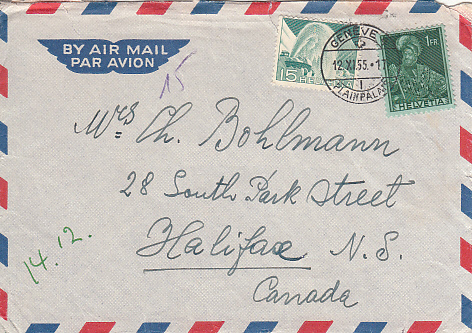 BY AIR MAIL
PAR AVION
15
15
GENEVE
12.XI.55.-17
PLAINPALAIS
1FR
HELVETIA
Mrs Ch. Bohlmann
28 South Park Street
Halifax N.S.
Canada
14.12.